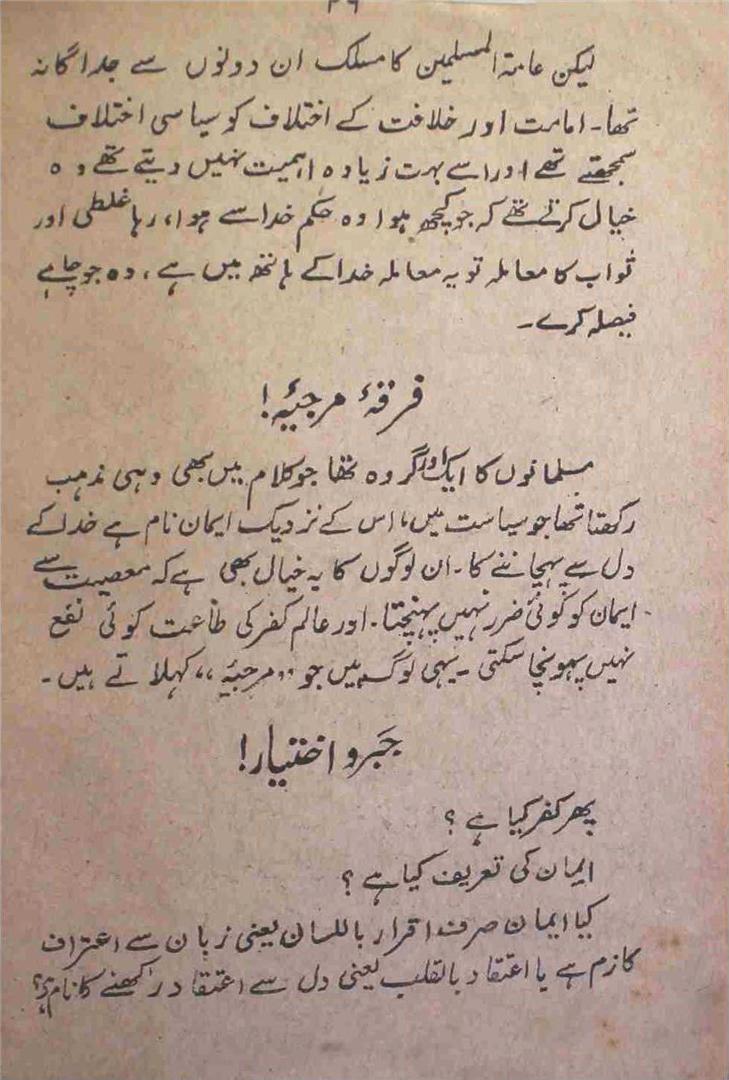 ۳۶
لیکن عامۃ المسلمین کا مسلک ان دونوں سے جداگانہ
تھا۔ امامت اور خلافت کے اختلاف کو سیاسی اختلاف
سمجھتے تھے اور اسے بہت زیادہ اہمیت نہیں دیتے تھے وہ
خیال کرتے تھے کہ جو کچھ ہوا وہ حکم خدا سے ہوا، رہا غلطی اور
ثواب کا معاملہ تو یہ معاملہ خدا کے ہاتھ میں ہے، وہ جو چاہے
فیصلہ کرے۔
فرقۂ مرجیۂ!
مسلمانوں کا ایک اور گروہ تھا جو کلام میں بھی وہی مذہب
رکھتا تھا جو سیاست میں، اس کے نزدیک ایمان نام ہے خدا کے
دل سے پہچاننے کا۔ ان لوگوں کا یہ خیال بھی ہے کہ معصیت سے
ایمان کو کوئی ضرر نہیں پہنچتا۔ اور عالم کفر کی طاعت کوئی نفع
نہیں پہونچا سکتی۔ یہی لوگ ہیں جو ”مرجیۂ“ کہلاتے ہیں۔
جَبر و اختیار!
پھر کفر کیا ہے؟
ایمان کی تعریف کیا ہے؟
کیا ایمان صرف اقرار باللسان یعنی زبان سے اعتراف
کا نام ہے یا اعتقاد بالقلب یعنی دل سے اعتقاد رکھنے کا نام ہے؟